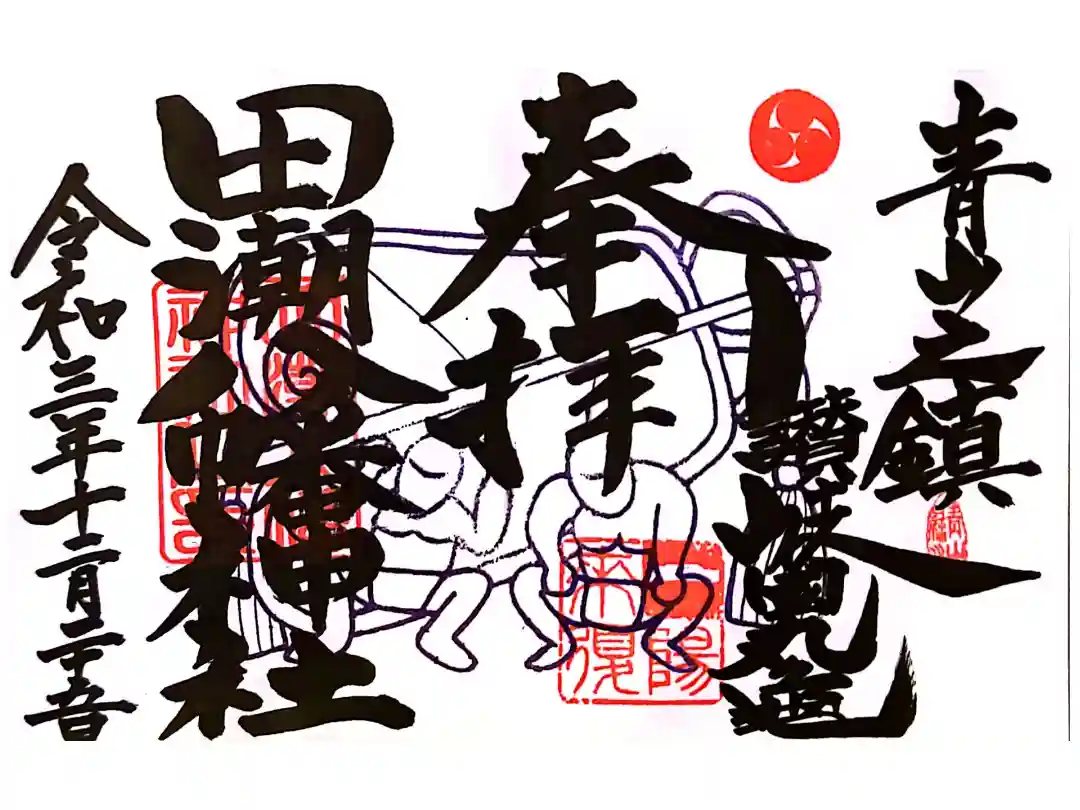 青山之鎮
奉拝
讃
丸亀
田潮八幡神社
令和三年十二月二十五日
一陽
来復